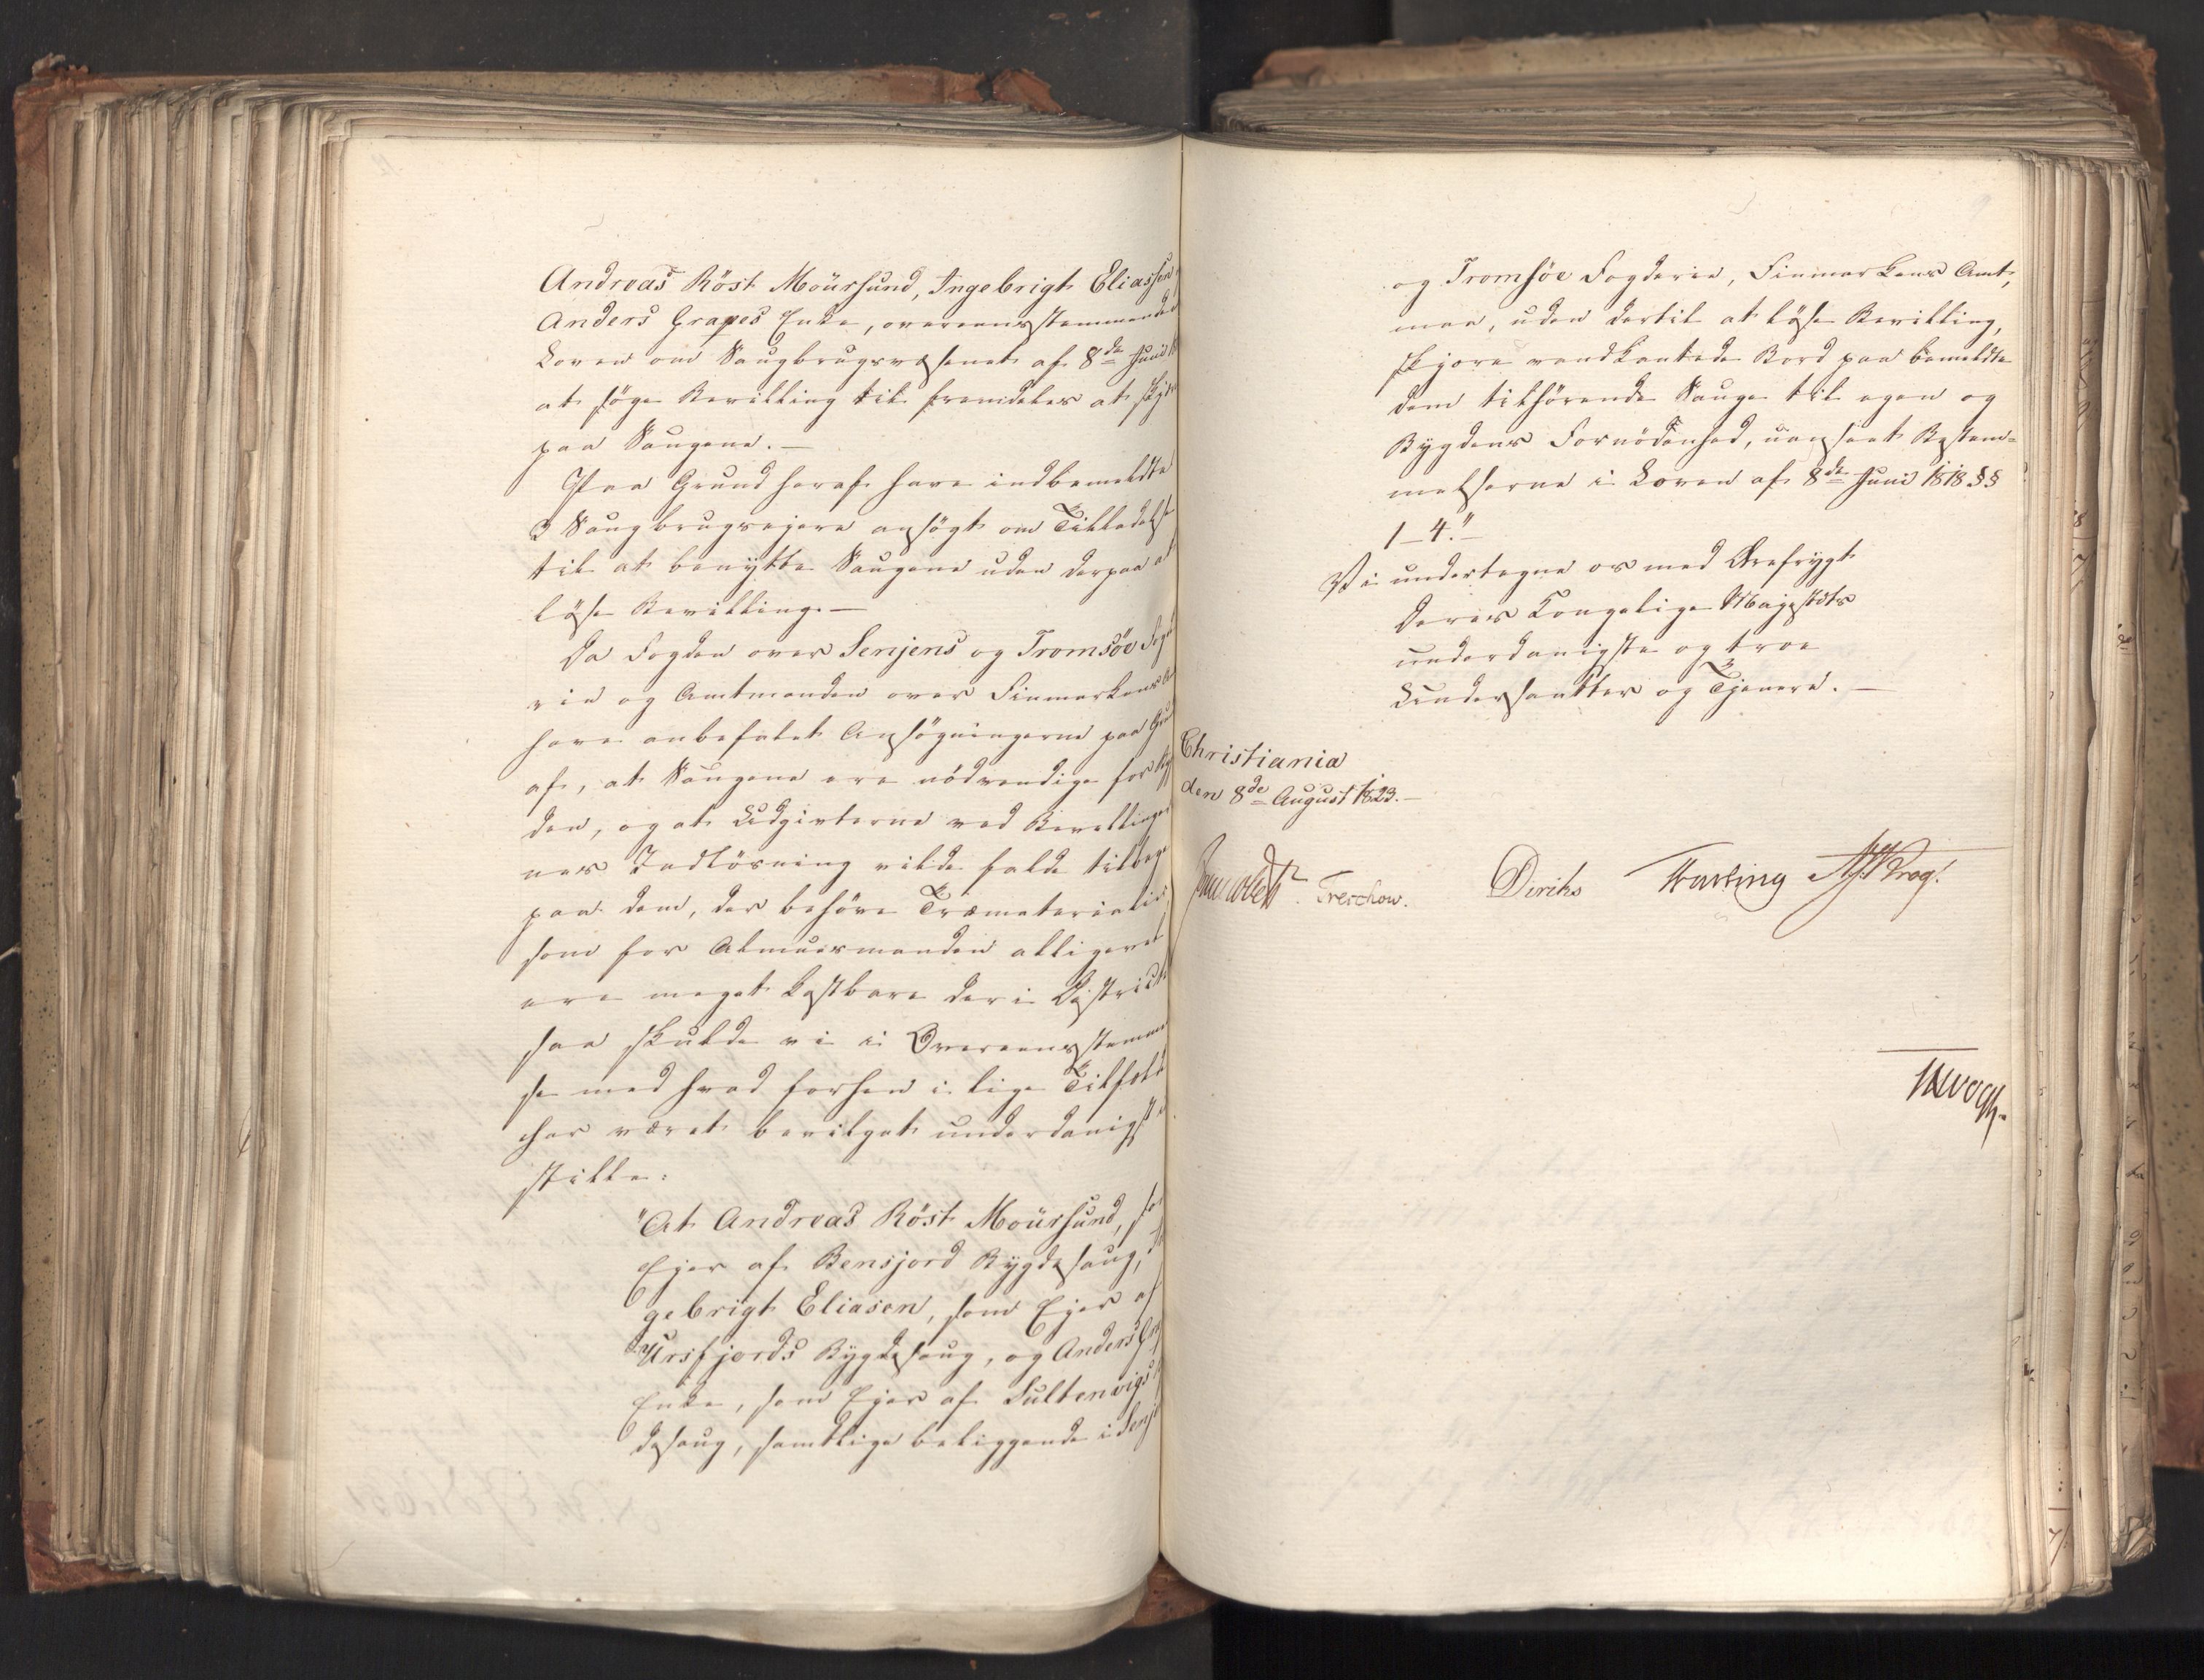 Andreas Röst Moursund, Ingebrigt Eliassen
Anders Grapes Enke, overeensstemmende
Loven om Saugbrugsvæsenet af 8de Juni
at søge Bevilling til fremdeles at skjære
paa Saugene. —
Paa Grund heraf have indbemeldte
3 Saugbrugsejere ansøgt om Tilladelse
til at benytte Saugene uden derpaa at
løse Bevilling. —
Da Fogden over Senjens og Tromsöe Fogde
rie og Amtmanden over Finmarkens
have anbefalet Ansøgningerne paa Grund
af, at Saugene ere nödvendige for Byg
den, og at Udgivterne ved Bevillinger
nes Indløsning vilde falde tilbage
paa dem, der behöve Træmaterialier
som for Almuesmanden alligevel
ere meget kostbare der i Districtet
saa skulde vi i Overeensstemmel
se med hvad forhen i lige Tilfælde
har været bevilget underdanigst
stille:
"At Andreas Röst Moursund, som
Ejer af Bensjord Bygdesaug, In
gebrigt Eliasen, som Ejer af
Ursfjords Bygdesaug, og Anders Grapes
Enke, som Ejer af Sultenvigs
desaug, samtlige beliggende i Senjens
og Tromsöe Fogderie, Finmarkens Amt,
maa, uden dertil at löse Bevilling,
skjære vandkantede Bord paa bemeldte
dem tilhörende Sauge til egen og
Bygdens Fornödenhed, uanseet Bestem=
melserne i Loven af 8de Juni 1818 §§
1–4." —
Vi undertegne os med Ærefrygt
Deres Kongelige Majestæts
underdanigste og troe
Undersaatter og Tjenere. —
Christiania
den 8de August 1823. —
Treschow. Diriks